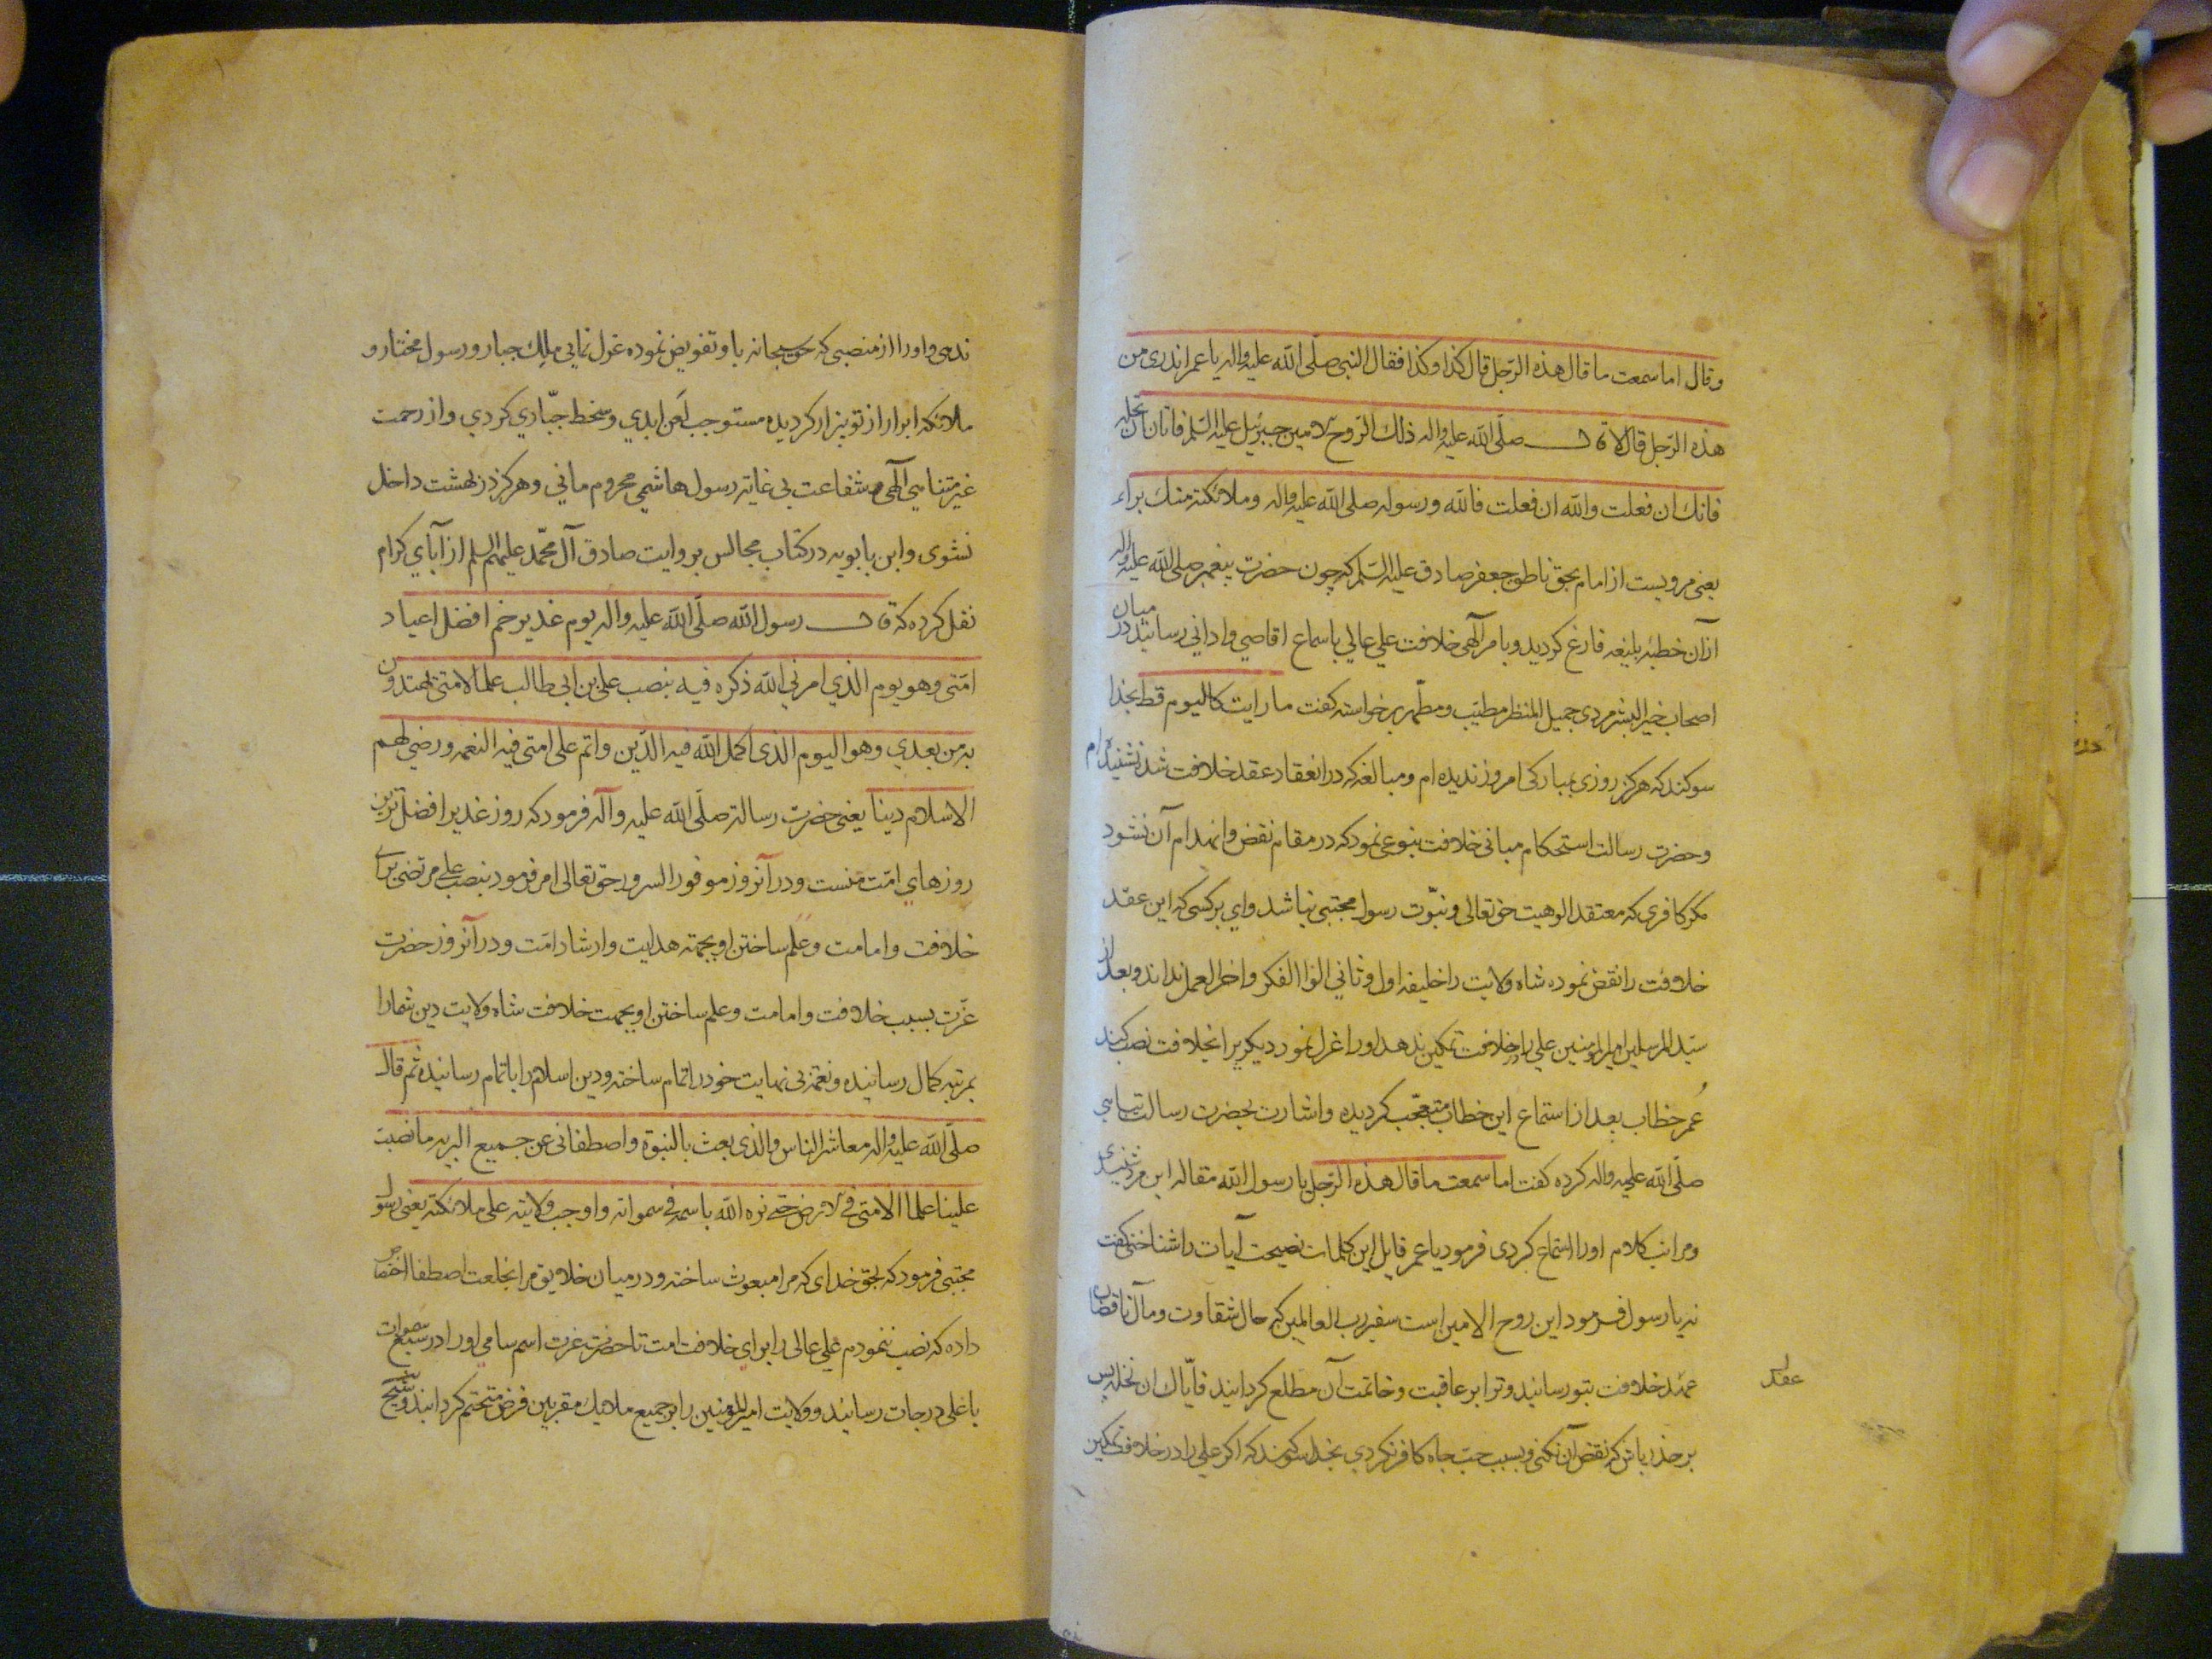 وقال اما سمعت ما قال هذه الرّجل قال كذا وكذا فقال النبي صلّى الله عليه واله يا عمر اتدرى من
هذه الرّجل قال لا قال صلّى الله عليه واله ذلك الرّوح الامين جبرئيل عليه السّلم فاياك ان تحله
فانك ان فعلت والله ان فعلت فالله ورسوله صلى الله عليه واله وملائكته منك براء
يعنى مرويست از امام بحق ناطق جعفر صادق عليه السّلم كه چون حضرت پيغمبر صلى الله عليه واله
از آن خطبۀ بليغه فارغ كرديد و بامر آلهى خلافت على عالي باسماع اقاصي و اداني رسانيد در ميان
اصحاب خير البشر مردى جميل المنظر مطيّب و مطهّر برخواسته كفت ما رايت كاليوم قط بخدا
سوكند كه هركز روزى بمباركى امروز نديده ام و مبالغه كه در انعقاد عقد خلافت شد نشنيده ام
و حضرت رسالت استحكام مبانى خلافت بنوعى نمود كه در مقام نقض و انهدام آن نشود
مكر كافرى كه معتقد الوهيت حق تعالى و نبّوت رسول مجتبى نباشد واي بر كسى كه اين عقد
خلافت را نقض نموده شاه ولايت را خليفه اول و ثاني الوا الفكر و اخر العمل نداند و بعد از
سيّد المرسلين امير المؤمنين علي را بر خلافت تمكين ندهد او را عزل نمود ديكرير انجلافت نصب كند
عُمر خطاب بعد از استماع اين خطاب متعجّب كرديده و اشارت بحضرت رسالت پناهي
صلّى الله عليه واله كرده كفت اما سمعت ما قال هذه الرّجل يا رسول الله مقاله اين مرد شنيدى
و مراتب كلام او را استماع كردى فرمود يا عمر قايل اين كلمات نصيحت آيات را شناختى كفت
نه يا رسول فرمود اين روح الامين است سفير رب العالمين كه حال شقاوت و مآل ناقضان
عهد خلافت بتو رسانيد و ترا بر عاقبت و خاتمت آن مطلع كردانيد فايّاك ان تحله پس
عقد
بر حذر باش كه نقض آن نكنى و بسبب حبّ جاه كافر نكردي بخدا سوكند كه اكر علي را در خلافت تمكين
ندهى و او را از منصبى كه حق سبحانه باو تفويض نموده عزل نمايى ملك جبار و رسول مختار و
ملائكه ابرار از تو بيزار كرديده مستوجب لعن ابدي و سخط جبّاري كردي و از رحمت
غير متناهي آلهى و شفاعت بى غايۀ رسول هاشمي محروم ماني و هركز در بهشت داخل
نشوى و ابن بابويه در كتاب مجالس بروايت صادق آل محمّد عليهم السلم از آباي كرام
نقل كرده كه قال رسول الله صلّى الله عليه واله يوم غدير خم افضل اعياد
امّتى وهو يوم الّذي امرني الله ذكره فيه بنصب على بن ابى طالب علما لامتى يهتدون
به من بعدي وهو اليوم الذى اكمل الله فيه الدّين واتم على امتى فيه النعمه ورضي لهم
الاسلام دينا يعنى حضرت رسالت صلّى الله عليه وآله فرمود كه روز غدير افضل ترين
روزهاي امّت منست و در آنروز موفور السرور حق تعالى امر فرمود بنصب على مرتضى براي
خلافت و امامت و علم ساختن او بجهته هدايت و ارشاد امّت و در آنروز حضرت
عزّت بسبب خلافت و امامت و علم ساختن او بجهت خلافت شاه ولايت دين شما را
بمرتبه كمال رسانيده و نعمت بى نهايت خود را تمام ساخته و دين اسلام را باتمام رسانيده ثم قال
صلّى الله عليه واله معاشر الناس والذى بعث بالنبوة واصطفانى عن جميع البريه ما نصبت
عليّنا علما لامتى فى الارض حتّى نوه الله باسمه فى سمواته واوجب ولايته على ملائكته يعنى رسول
مجتبى فرمود كه بحق خداى كه مرا مبعوث ساخته و در ميان خلايق مرا بخلعت اصطفا اختصاص
داده كه نصب ننمودم علي عالى را براي خلافت امت تا حضرت عزت اسم سامي او را در سبع سموات
باعلى درجات رسانيد و ولايت امير المؤمنين را بر جميع ملايك مقربين فرض متحتم كردانيد و شيخ